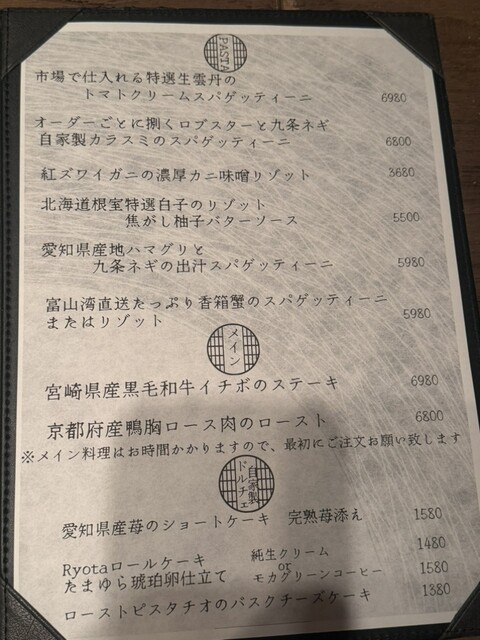 PASTA
市場で仕入れる特選生雲丹の
トマトクリームスパゲッティーニ 6980
オーダーごとに捌くロブスターと九条ネギ
自家製カラスミのスパゲッティーニ 6800
紅ズワイガニの濃厚カニ味噌リゾット 3680
北海道根室特選白子のリゾット
焦がし柚子バターソース 5500
愛知県産地ハマグリと
九条ネギの出汁スパゲッティーニ 5980
富山湾直送たっぷり香箱蟹のスパゲッティーニ
またはリゾット 5980
メイン
宮崎県産黒毛和牛イチボのステーキ 6980
京都府産鴨胸ロース肉のロースト 6800
※メイン料理はお時間かかりますので、最初にご注文お願い致します
自家製
ドルチェ
愛知県産苺のショートケーキ 完熟苺添え 1580
Ryotaロールケーキ 純生クリーム 1480
or
たまゆら琥珀卵仕立て モカグリーンコーヒー 1580
ローストピスタチオのバスクチーズケーキ 1380